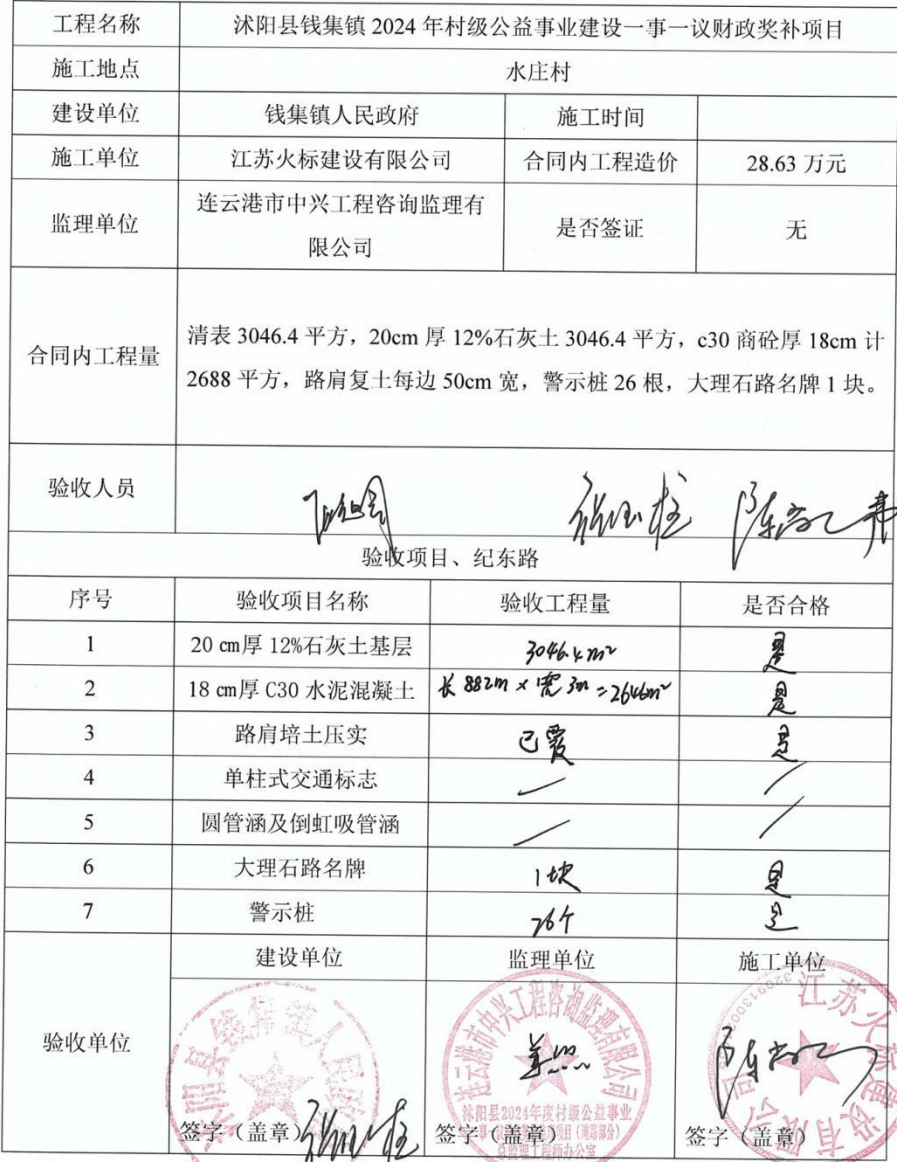 工程名称 沭阳县钱集镇 2024 年村级公益事业建设一事一议财政奖补项目
施工地点 水庄村
建设单位 钱集镇人民政府 施工时间
施工单位 江苏火标建设有限公司 合同内工程造价 28.63 万元
监理单位 连云港市中兴工程咨询监理有
限公司 是否签证 无
合同内工程量 清表 3046.4 平方，20cm 厚 12%石灰土 3046.4 平方，c30 商砼厚 18cm 计
2688 平方，路肩复土每边 50cm 宽，警示桩 26 根，大理石路名牌 1 块。
验收人员
验收项目、纪东路
序号 验收项目名称 验收工程量 是否合格
1 20 cm厚 12%石灰土基层 3046.4m² 是
2 18 cm厚 C30 水泥混凝土 长 882m × 宽 3m = 2646m² 是
3 路肩培土压实 已覆 是
4 单柱式交通标志 / /
5 圆管涵及倒虹吸管涵 / /
6 大理石路名牌 1块 是
7 警示桩 26个 是
验收单位 建设单位 监理单位 施工单位
沭阳县钱集镇人民政府
连云港市中兴工程咨询监理有限公司
沭阳县2024年度村级公益事业
总监理工程师办公室
江苏火标建设有限公司
签字（盖章） 签字（盖章） 签字（盖章）